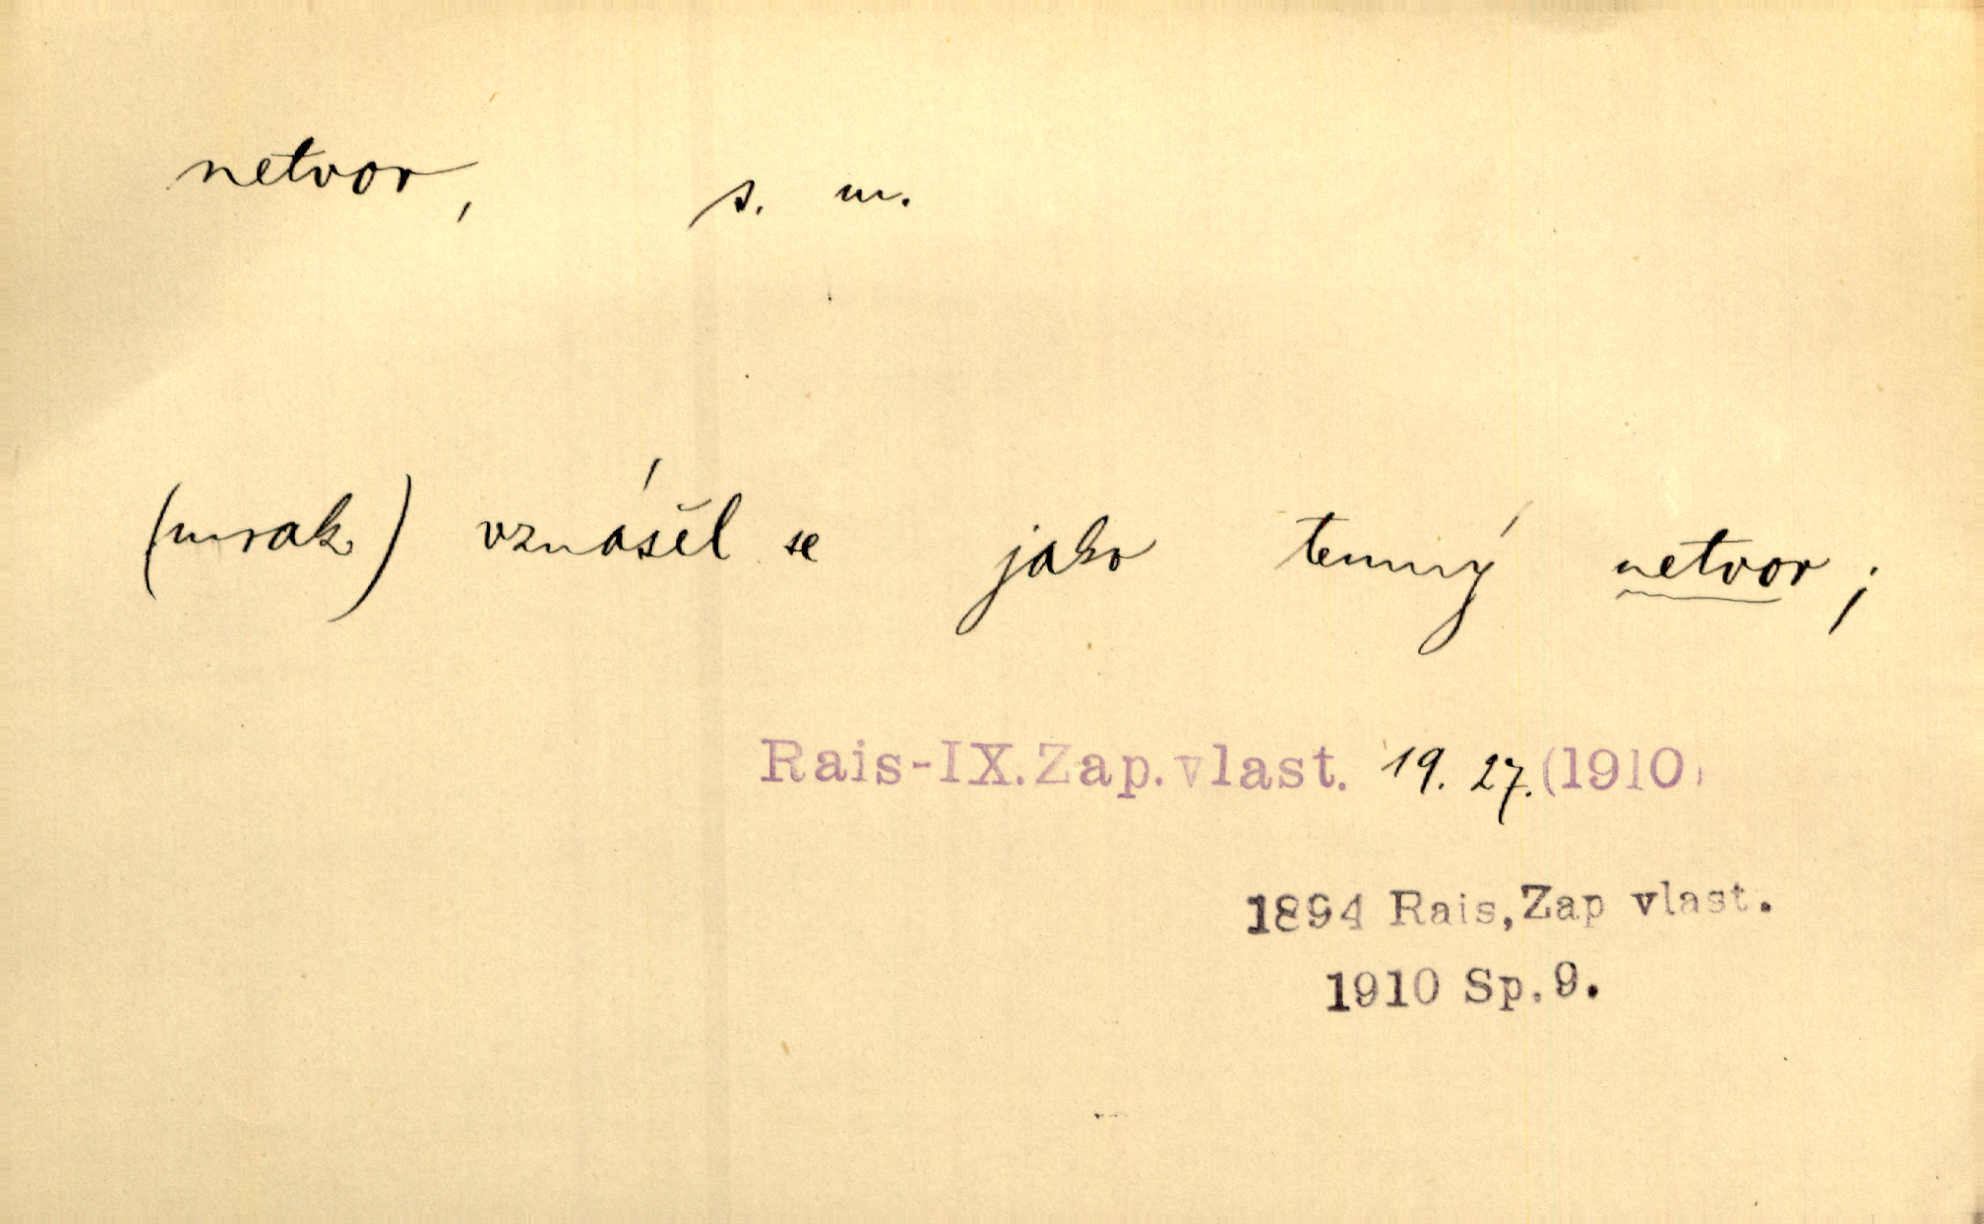 netvor, s. m.
(mrak) vznášel se jako temný netvor;
Rais-IX.Zap.vlast. 19. 27. (1910)
1894 Rais, Zap vlast.
1910 Sp. 9.